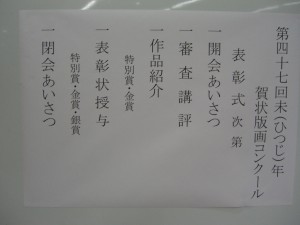 第四十七回未(ひつじ)年
賀状版画コンクール
表彰式次第
一開会あいさつ
一審査講評
一作品紹介
特別賞・金賞
一表彰状授与
特別賞・金賞・銀賞
一閉会あいさつ